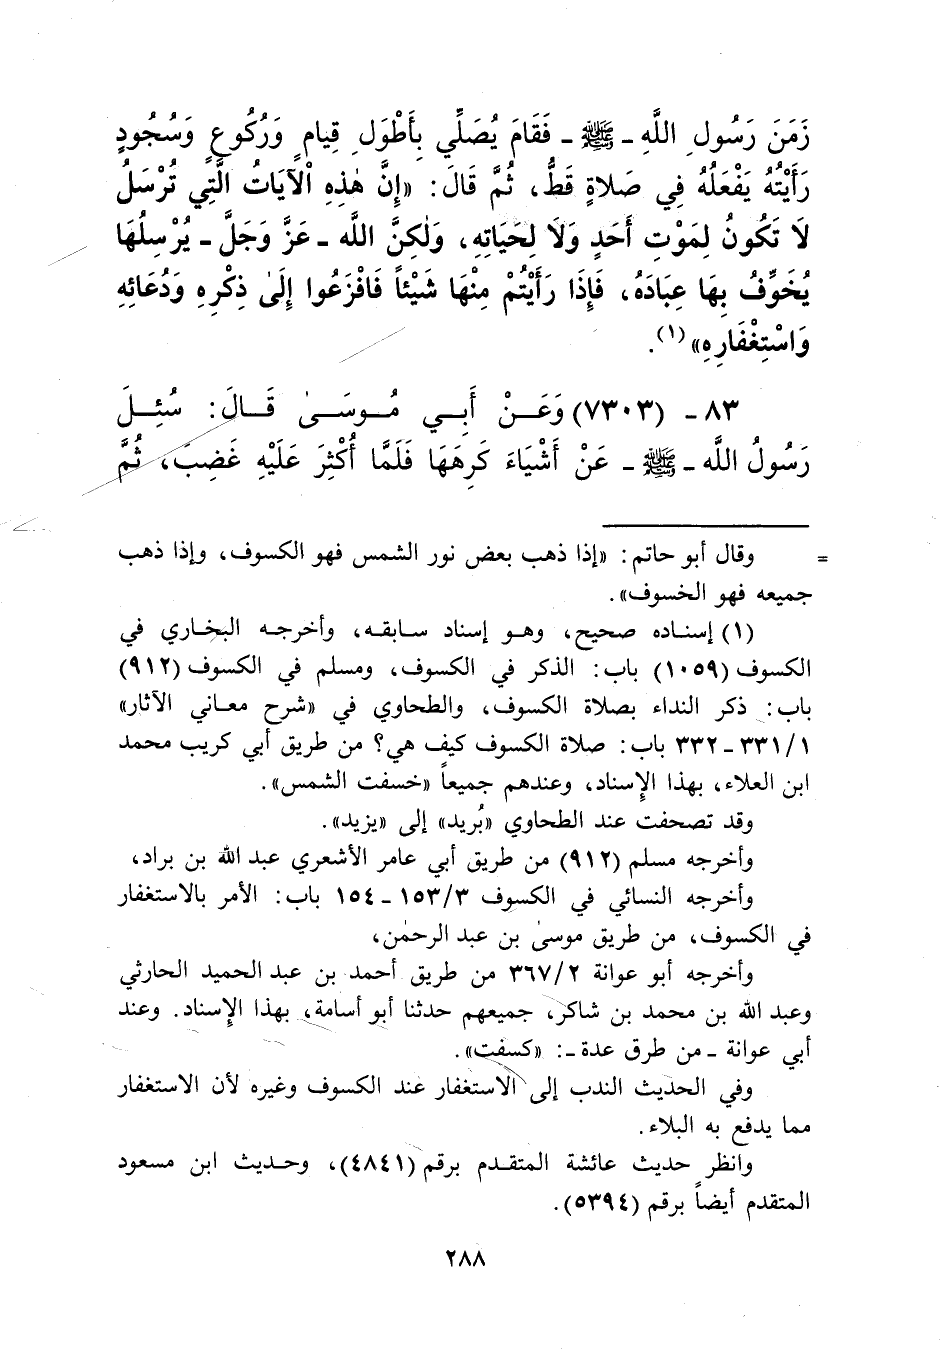 زَمَنَ رَسُولِ اللَّهِ ـ ﷺ ـ فَقَامَ يُصَلِّي بِأَطْوَلِ قِيامٍ وَرُكُوعٍ وَسُجُودٍ
رَأَيْتُهُ يَفْعَلُهُ فِي صَلاةٍ قَطُّ، ثُمَّ قَالَ: «إِنَّ هٰذِهِ الْآيَاتُ الَّتِي تُرْسَلُ
لَا تَكُونُ لِمَوْتِ أَحَدٍ وَلَا لِحَيَاتِهِ، وَلٰكِنَّ اللَّه ـ عَزَّ وَجَلَّ ـ يُرْسِلُهَا
يُخَوِّفُ بِهَا عِبَادَهُ، فَإِذَا رَأَيْتُمْ مِنْهَا شَيْئاً فَافْزَعُوا إِلَىٰ ذِكْرِهِ وَدُعَائِهِ
وَاسْتِغْفَارِهِ» (١).
٨٣ ـ (٧٣٠٣) وَعَنْ أَبِي مُوسَىٰ قَالَ: سُئِلَ
رَسُولُ اللَّه ـ ﷺ ـ عَنْ أَشْيَاءَ كَرِهَهَا فَلَمَّا أُكْثِرَ عَلَيْهِ غَضِبَ، ثُمَّ
= وقال أبو حاتم: «إذا ذهب بعض نور الشمس فهو الكسوف، وإذا ذهب
جميعه فهو الخسوف».
(١) إسناده صحيح، وهو إسناد سابقه، وأخرجه البخاري في
الكسوف (١٠٥٩) باب: الذكر في الكسوف، ومسلم في الكسوف (٩١٢)
باب: ذكر النداء بصلاة الكسوف، والطحاوي في «شرح معاني الآثار»
١/ ٣٣١ ـ ٣٣٢ باب: صلاة الكسوف كيف هي؟ من طريق أبي كريب محمد
ابن العلاء، بهذا الإسناد، وعندهم جميعاً «خسفت الشمس».
وقد تصحفت عند الطحاوي «بُريد» إلى «يزيد».
وأخرجه مسلم (٩١٢) من طريق أبي عامر الأشعري عبد الله بن براد،
وأخرجه النسائي في الكسوف ٣/ ١٥٣ ـ ١٥٤ باب: الأمر بالاستغفار
في الكسوف، من طريق موسىٰ بن عبد الرحمٰن،
وأخرجه أبو عوانة ٢/ ٣٦٧ من طريق أحمد بن عبد الحميد الحارثي
وعبد الله بن محمد بن شاكر، جميعهم حدثنا أبو أسامة، بهذا الإسناد. وعند
أبي عوانة ـ من طرق عدة ـ: «كسفت».
وفي الحديث الندب إلى الاستغفار عند الكسوف وغيره لأن الاستغفار
مما يدفع به البلاء.
وانظر حديث عائشة المتقدم برقم (٤٨٤١)، وحديث ابن مسعود
المتقدم أيضاً برقم (٥٣٩٤).
٢٨٨